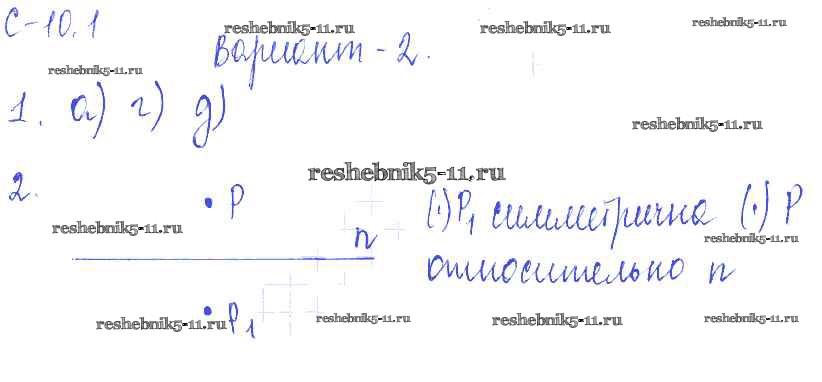 С-10.1
reshebnik5-11.ru
reshebnik5-11.ru
reshebnik5-11.ru
Вариант - 2.
reshebnik5-11.ru
1. а) г) д)
reshebnik5-11.ru
reshebnik5-11.ru
2.
P
(·) P1 симметрична (·) P
reshebnik5-11.ru
n
reshebnik5-11.ru
относительно n
P1
reshebnik5-11.ru
reshebnik5-11.ru
reshebnik5-11.ru
reshebnik5-11.ru